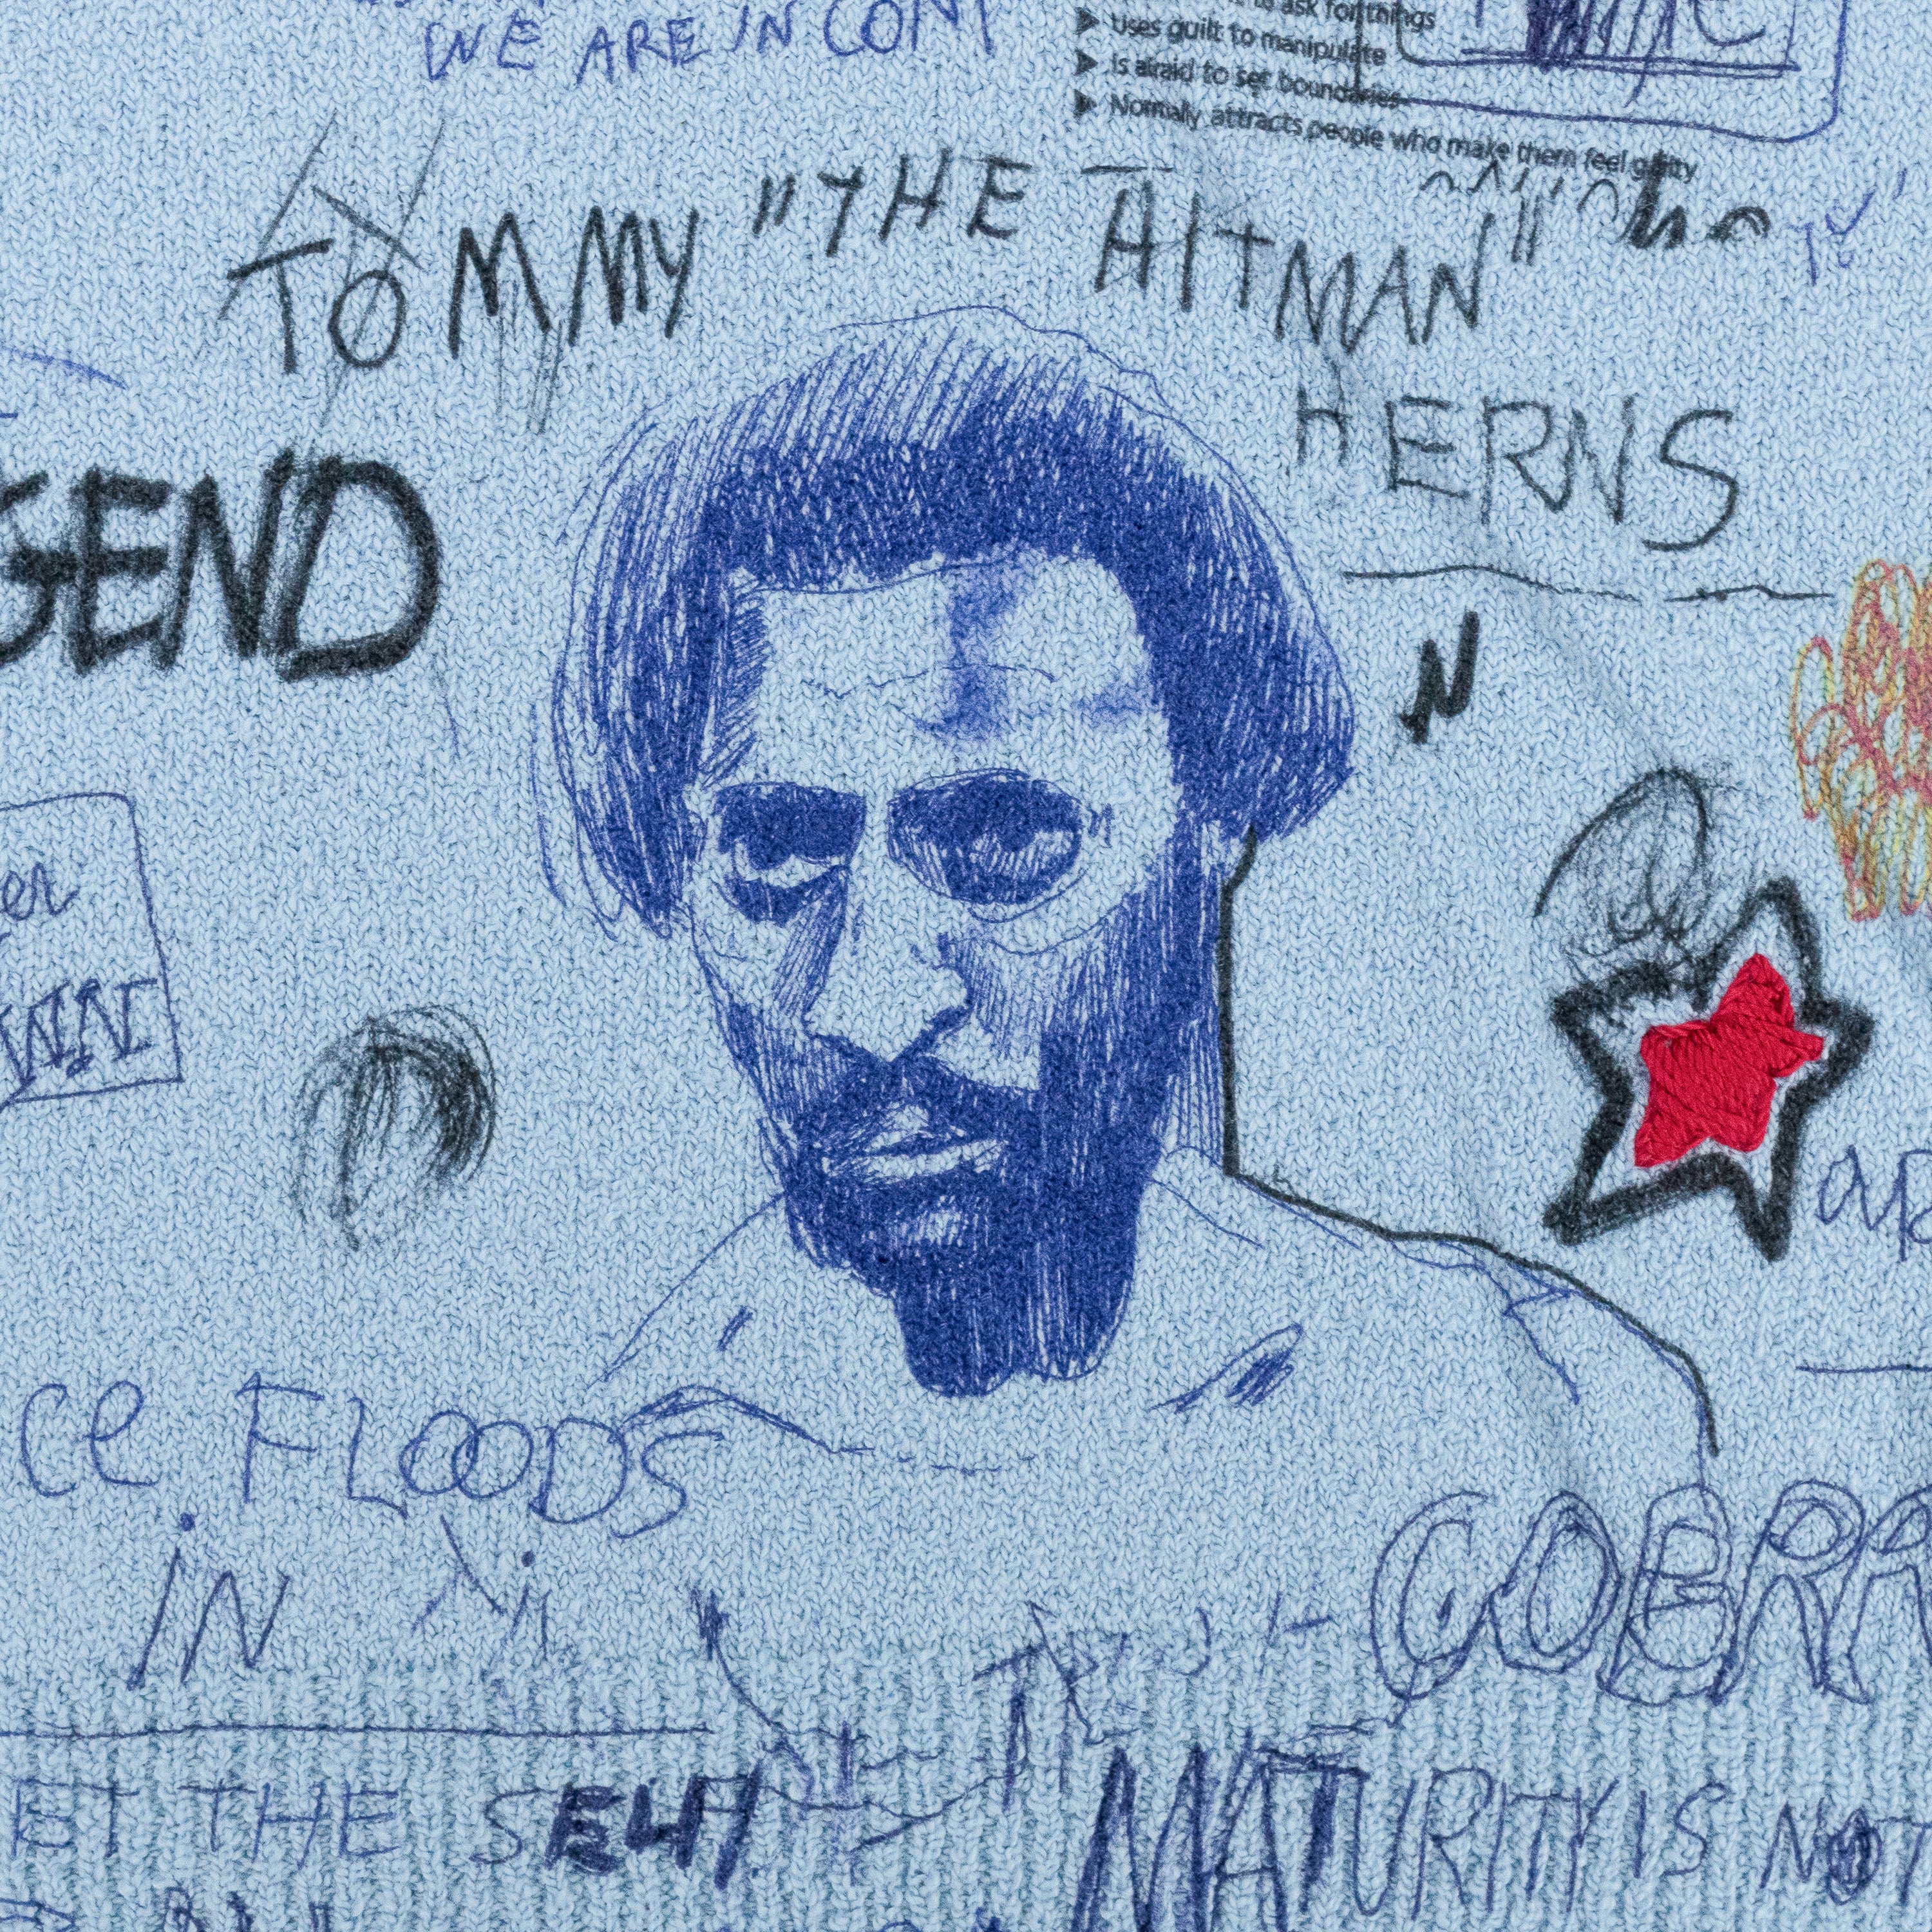 WE ARE IN
to ask for things
Uses guilt to manipulate
Is afraid to set boundaries
Normally attracts people who make them feel guilty
TOMMY "THE HITMAN"
HERNS
GEND
N
er
ce FLOODS
iN
COBRA
ET THE SELF
MATURITY IS NOT